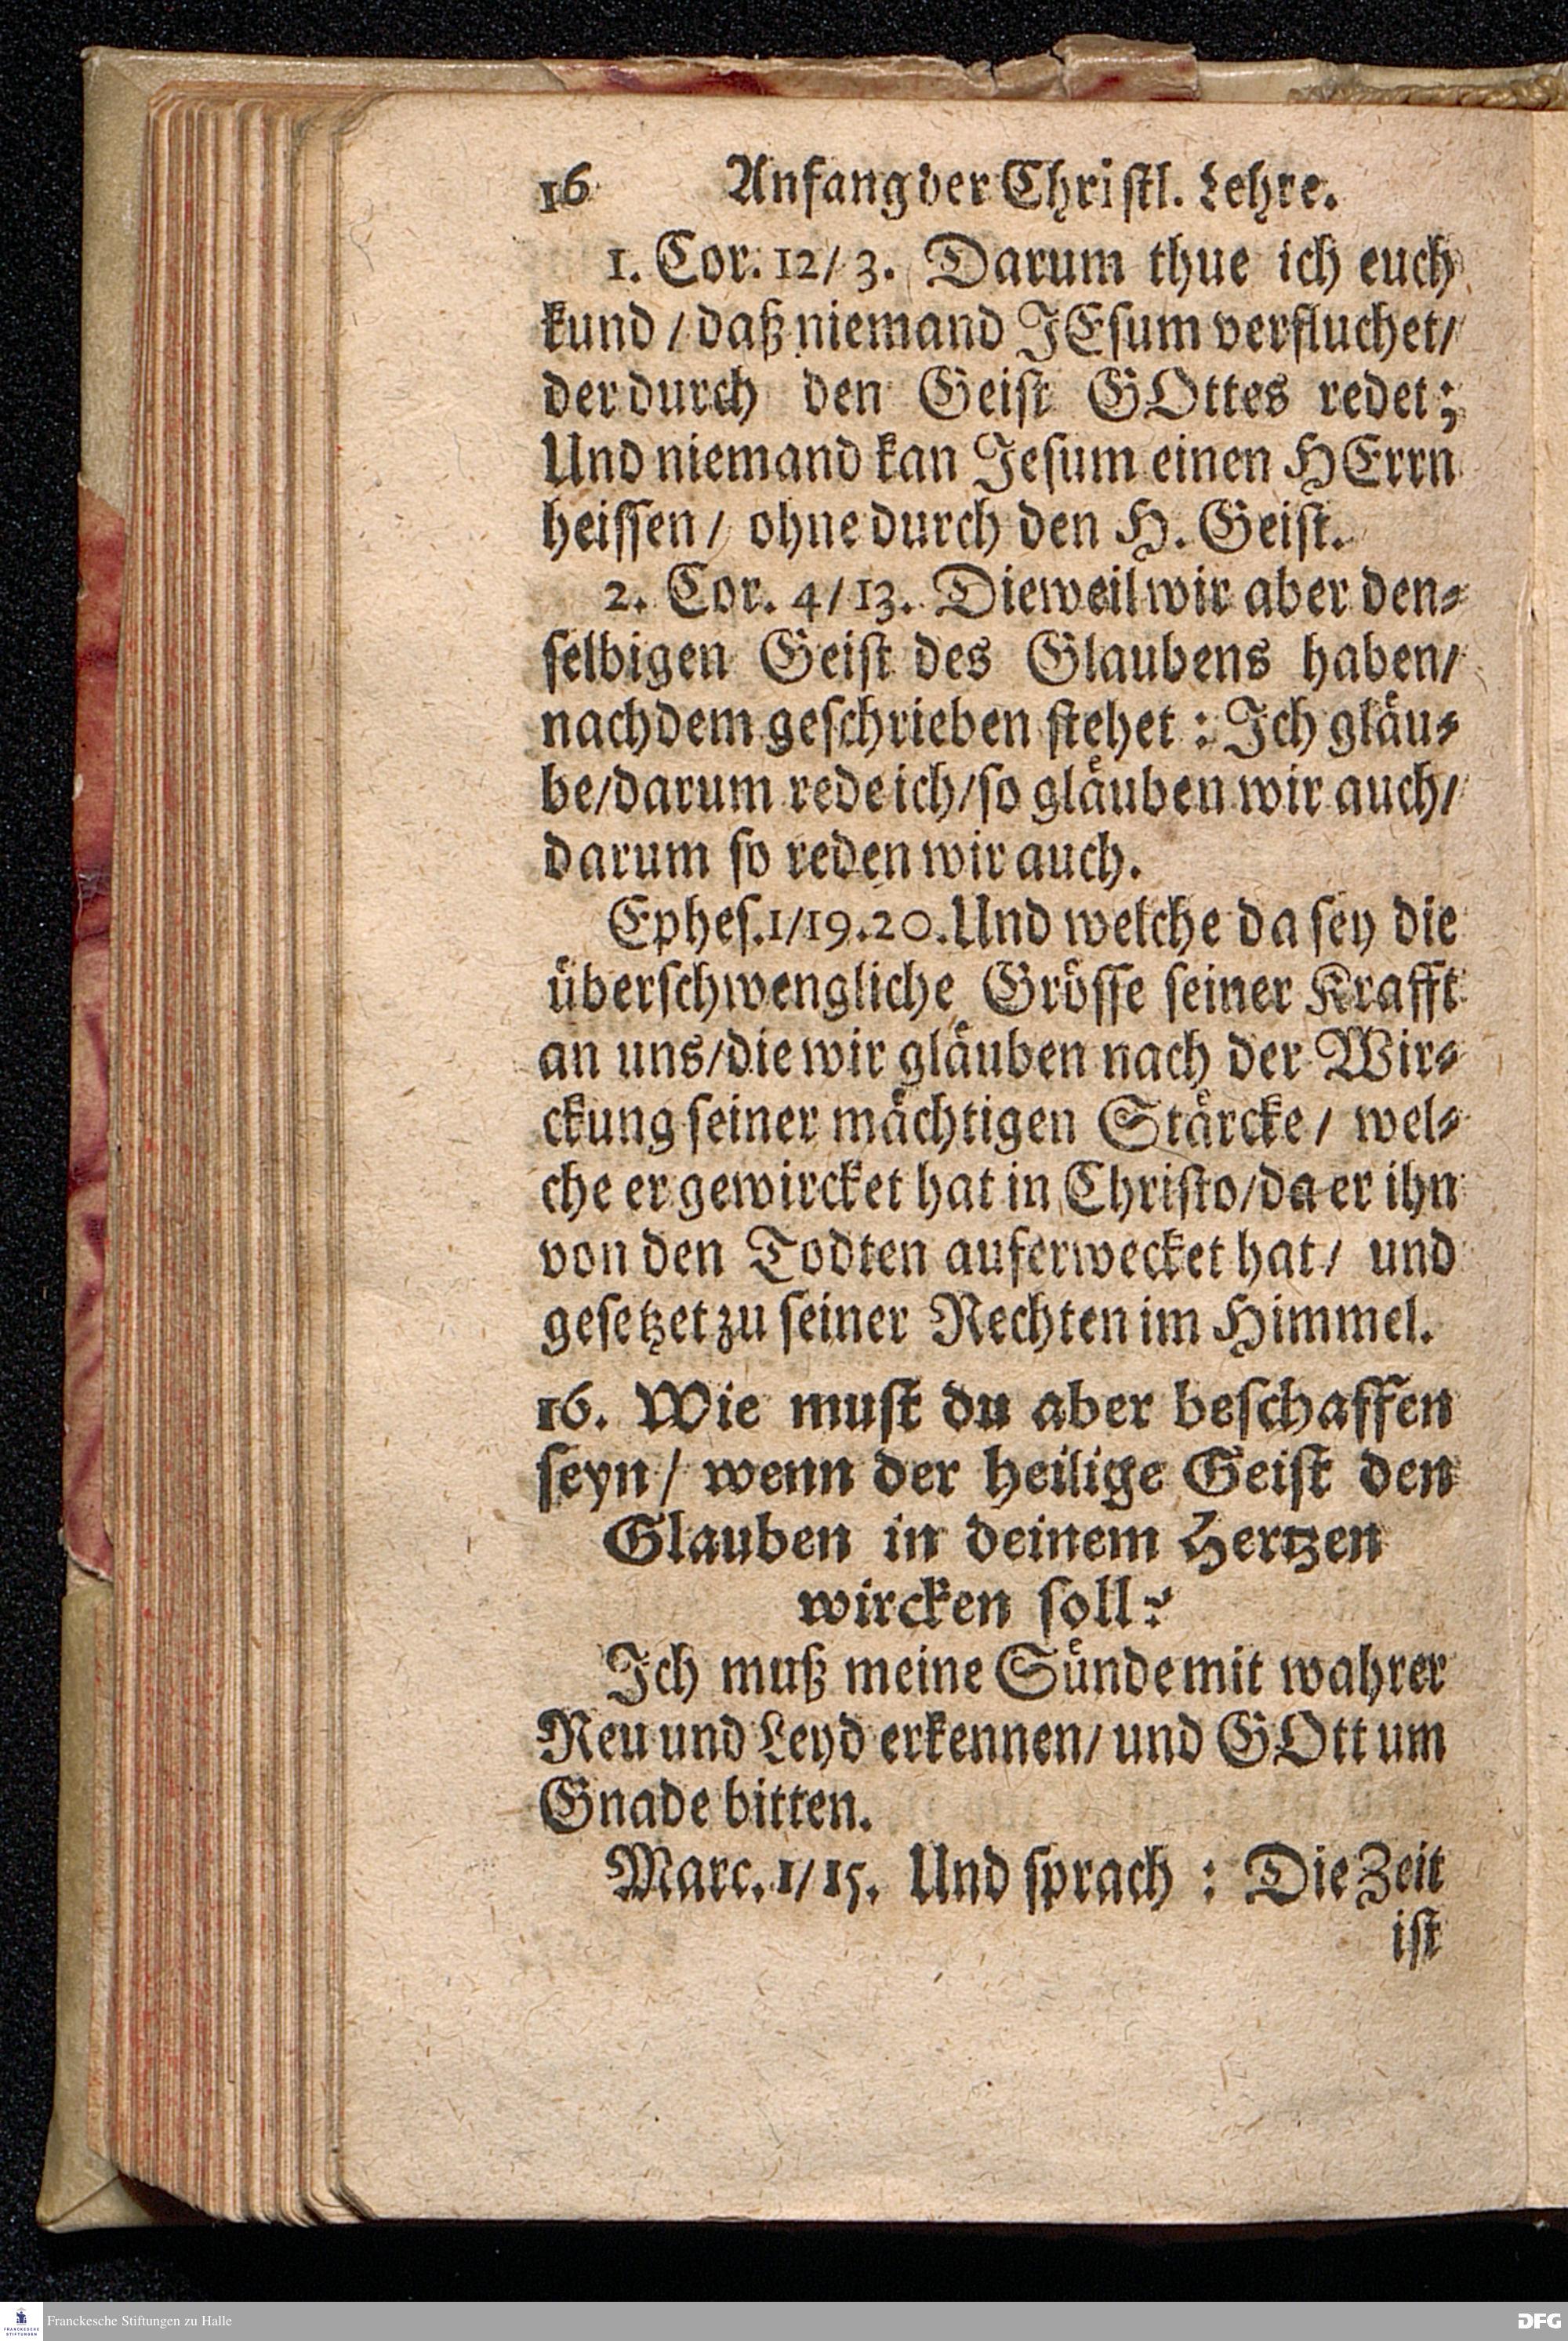 16 Anfang der Christl. Lehre.
1. Cor. 12/ 3. Darum thue ich euch
kund / daß niemand JEsum verfluchet/
der durch den Geist GOttes redet;
Und niemand kan Jesum einen HErrn
heissen/ ohne durch den H. Geist.
2. Cor. 4/13. Dieweil wir aber den⸗
selbigen Geist des Glaubens haben/
nachdem geschrieben stehet: Ich gläu⸗
be/darum rede ich/so gläuben wir auch/
darum so reden wir auch.
Ephes.1/19.20.Und welche da sey die
überschwengliche Grösse seiner Krafft
an uns/die wir gläuben nach der Wir⸗
ckung seiner mächtigen Stärcke/ wel⸗
che er gewircket hat in Christo/da er ihn
von den Todten auferwecket hat/ und
gesetzet zu seiner Rechten im Himmel.
16. Wie must du aber beschaffen
seyn/ wenn der heilige Geist den
Glauben in deinem Hertzen
wircken soll?
Ich muß meine Sünde mit wahrer
Reu und Leyd erkennen/ und GOtt um
Gnade bitten.
Marc. 1/15. Und sprach : Die Zeit
ist
FRANCKESCHE STIFTUNGEN
Franckesche Stiftungen zu Halle
DFG